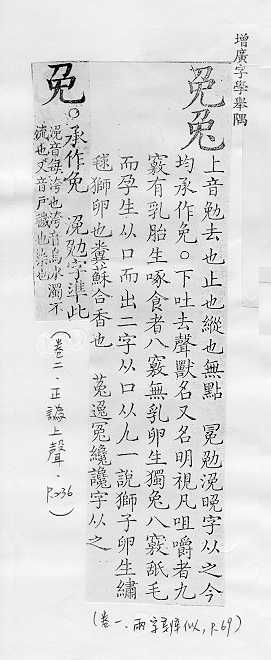 增廣字學舉隅
免兔
上音勉去也止也縱也無點 冕勉浼晚字从之今
均承作免○下吐去聲獸名又名明視凡咀嚼者九
竅有乳胎生啄食者八竅無乳卵生獨兔八竅舐毛
而孕生从口而出二字从口从九一說獅子卵生繡
毬獅卵也糞蘇合香也 菟逸冤纔讒字从之
(卷一、兩字辨似, P.69)
免○承作免 浼勉字準此
浼音每洿也洿音烏水濁不
流也又音戶穢也染也
(卷二、正譌上聲、P.236)